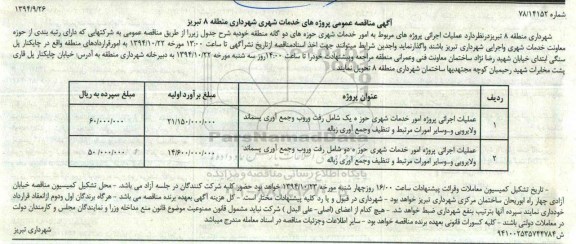 شماره ۷۸/۱۴۱۵۲
۱۳۹۴/۹/۲۶
آگهی مناقصه عمومی پروژه های خدمات شهری شهرداری منطقه ۸ تبریز
شهرداری منطقه ۸ تبریز درنظردارد عملیات اجرائی پروژه های مربوط به امور خدمات شهری حوزه های دو گانه منطقه خودبه شرح جدول زیررا از طریق مناقصه عمومی به شرکتهایی که دارای رتبه بندی از حوزه
معاونت خدمات شهری واجرایی شهرداری تبریز باشند واگذارنماید واجدین شرایط میتوانند جهت اخذ اسنادمناقصه ازتاریخ نشرآگهی تا ساعت ۱۳:۰۰ مورخه ۱۳۹۴/۱۰/۲۲ به امورقراردادهای منطقه واقع در چایکنار پل
سنگی ابتدای خیابان شهید رضا نژاد ساختمان فنی وعمرانی منطقه مراجعه وپیشنهادت خودرا تا ساعت ۱۴:۰۰ روز سه شنبه مورخه ۱۳۹۴/۱۰/۲۲ به دبیرخانه شهرداری منطقه به آدرس: خیابان چایکنار پل قاری
پشت مخابرات شهید رحیمیان کوچه مجتهدیها ساختمان شهرداری منطقه ۸ تحویل نمایند.
ردیف عنوان پروژه مبلغ برآورد اولیه مبلغ سپرده به ریال
۱ عملیات اجرائی پروژه امور خدمات شهری حوزه یک شامل رفت وروب وجمع آوری پسماند ولایروبی و..سایر امورات مرتبط و تنظیف وجمع آوری زباله ۲۱/۱۵۰/۰۰۰/۰۰۰ ۶۰/۰۰۰/۰۰۰
۲ عملیات اجرائی پروژه امور خدمات شهری حوزه دو شامل رفت وروب وجمع آوری پسماند ولایروبی و..سایر امورات مرتبط و تنظیف وجمع آوری زباله ۱۴/۶۰۰/۰۰۰/۰۰۰ ۵۰/۰۰۰/۰۰۰
- تاریخ تشکیل کمیسیون معاملات وقرائت پیشنهادات ساعت ۱۶:۰۰ روزچهار شنبه مورخه ۱۳۹۴/۱۰/۲۳ خواهد بود حضور کلیه شرکت کنندگان در جلسه آزاد می باشد. - محل تشکیل کمیسیون مناقصه خیابان
آزادی چهار راه ابوریحان ساختمان مرکزی شهرداری تبریز خواهد بود - شهرداری در قبول و یا رد کلیه پیشنهادات مختار است - کل هزینه آگهی بعهده برنده مناقصه می باشد - هرگاه برندگان اول ودوم ازانعقاد قرارداد
خودداری نمایند سپرده آنها بترتیب بنفع شهرداری ضبط خواهد شد. - هیچ کدام از اعضای (اصلی- علی البدل) شرکت نباید مشمول قانون ممنوعیت موضوع قانون منع مداخله وزرا و نمایندگان مجلس و کارمندان دولت
در معاملات دولتی باشند - کلیه کسورات قانونی بعهده برنده مناقصه خواهد بود - سایر اطلاعات وجزئیات مناقصه در اسناد معامله مندرج میباشد
شهرداری تبریز